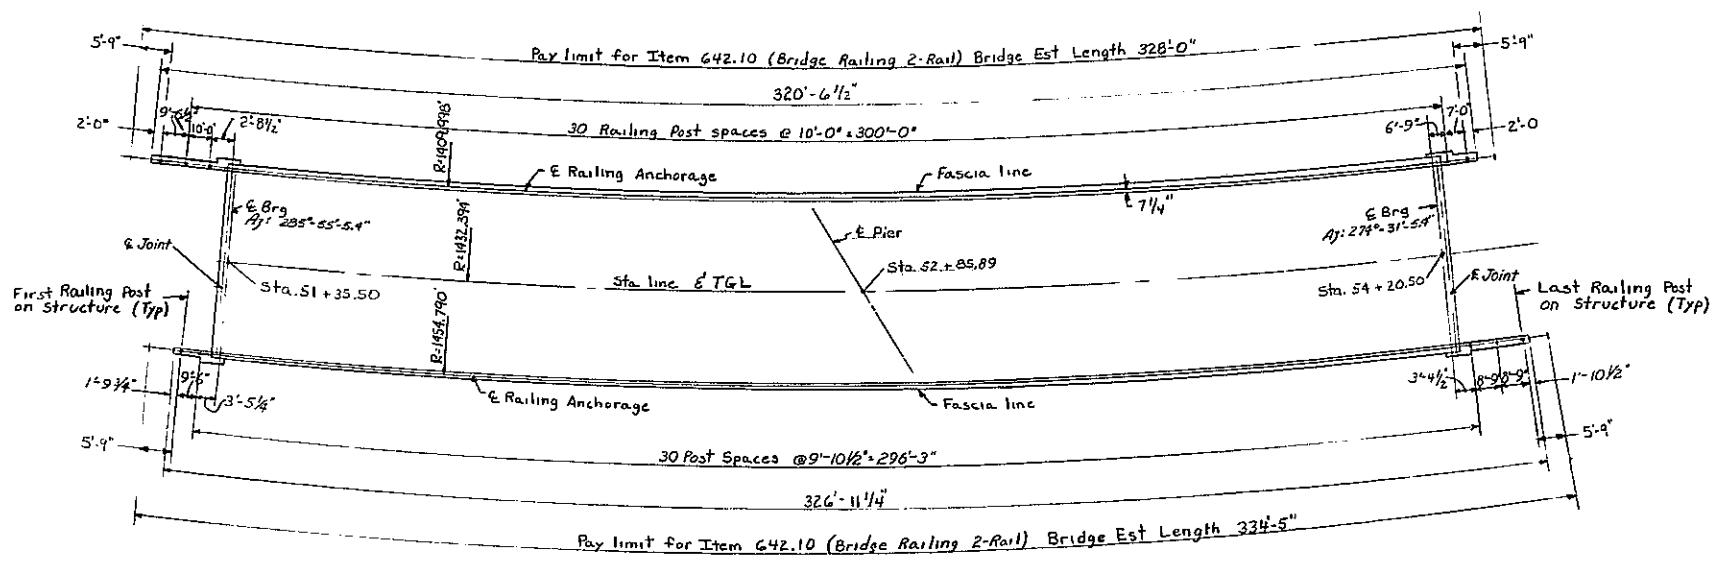 Pay limit for Item 642.10 (Bridge Railing 2-Rail) Bridge Est Length 328'-0"
5'-9"
5'-9"
320'-6 1/2"
30 Railing Post spaces @ 10'-0" = 300'-0"
2'-0"
10'-0"
2'-8 1/2"
6'-9"
7'-0"
2'-0
R=1409.998'
℄ Railing Anchorage
Fascia line
7 1/4"
℄ Brg
Az: 285°-55'-5.4"
℄ Brg
Az: 274°-31'-5.4"
℄ Joint
R=1432.394'
℄ Pier
Sta. 52+85.89
Sta line & TGL
Sta. 51+35.50
Sta. 54+20.50
℄ Joint
First Railing Post
on Structure (Typ)
Last Railing Post
on Structure (Typ)
R=1454.790'
1'-9 3/4"
3'-5 1/4"
℄ Railing Anchorage
Fascia line
3'-4 1/2"
8'-9"
8'-9"
1'-10 1/2"
5'-9"
5'-9"
30 Post Spaces @ 9'-10 1/2" = 296'-3"
326'-11 1/4"
Pay limit for Item 642.10 (Bridge Railing 2-Rail) Bridge Est Length 334'-5"